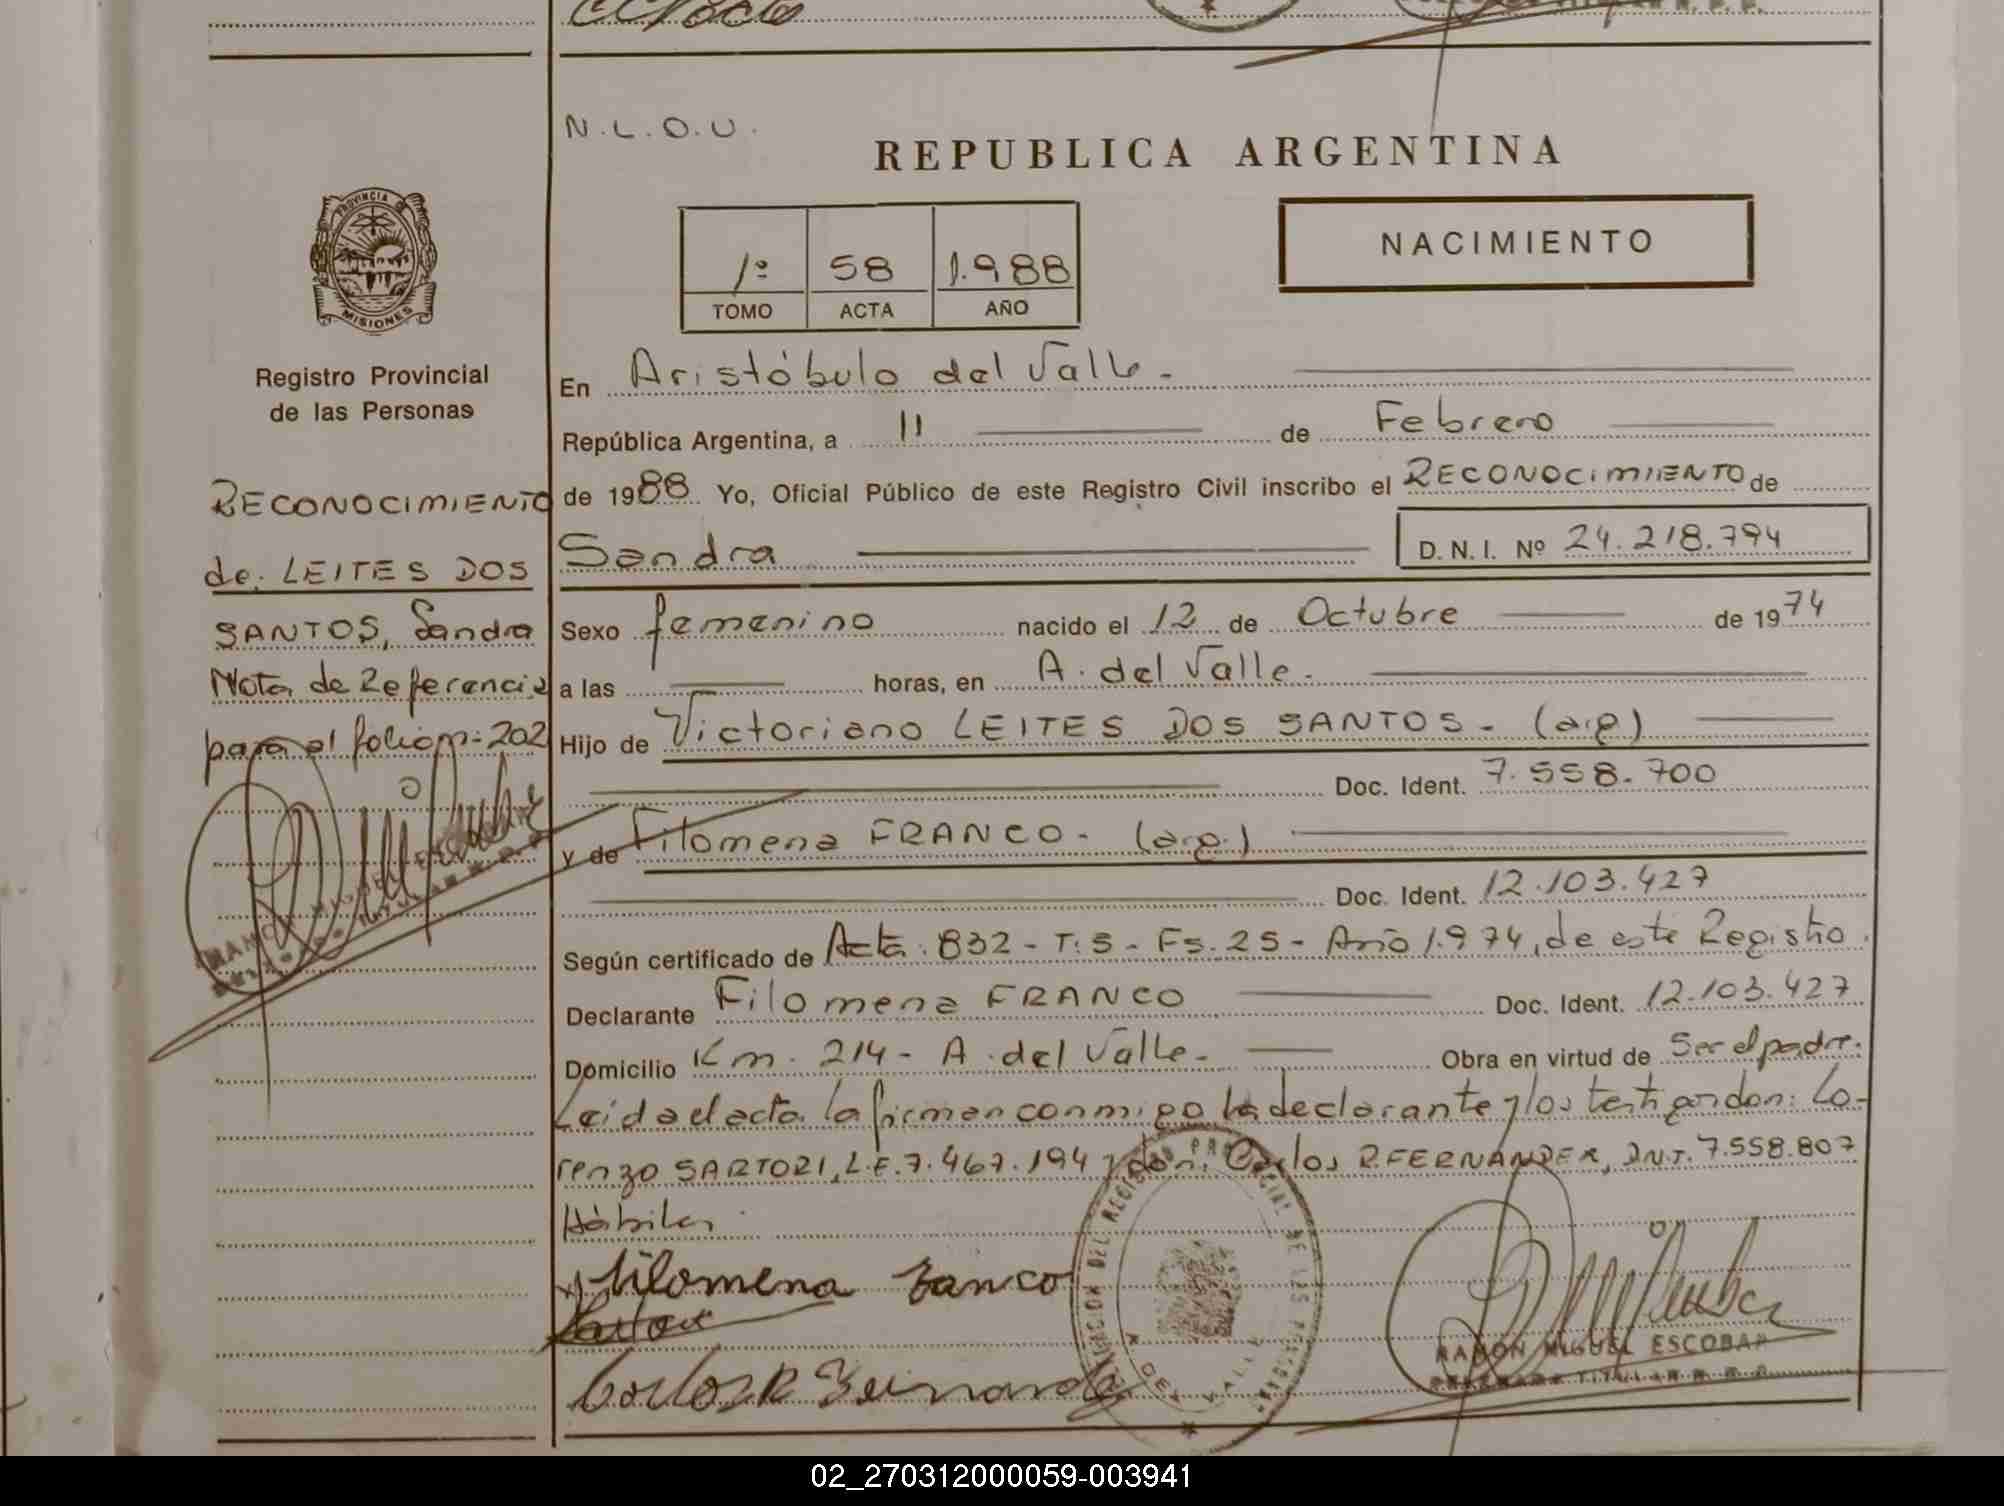 N.L.O.U.
REPUBLICA ARGENTINA
NACIMIENTO
1º 58 1.988
TOMO ACTA AÑO
PROVINCIA DE
MISIONES
Registro Provincial
de las Personas
RECONOCIMIENTO
de. LEITES DOS
SANTOS, Sandra
Nota de Referencia
para el folio nº 202
En Aristóbulo del Valle.
República Argentina, a 11 de Febrero
de 1988 Yo, Oficial Público de este Registro Civil inscribo el RECONOCIMIENTO de
Sandra D.N.I. Nº 24.218.794
Sexo femenino nacido el 12 de Octubre de 1974
a las horas, en A. del Valle.
Hijo de Victoriano LEITES DOS SANTOS. (arg)
Doc. Ident. 7.558.700
y de Filomena FRANCO. (arg.)
Doc. Ident. 12.103.427
Según certificado de Acta: 832 - T: 5 - Fs. 25 - Año 1.974, de este Registro.
Declarante Filomena FRANCO Doc. Ident. 12.103.427
Domicilio Km. 214 - A. del Valle. Obra en virtud de Ser el padre.
Leida el acta la firman conmigo la declarante y los testigos don: Lo-
renzo SARTORI, L.E. 7.467.194 y don: Carlos R. FERNANDEZ, D.N.I. 7.558.807
Hábiles.
Filomena Franco
Sartori
Carlos R Fernandez
RAMON MIGUEL ESCOBAR
DELEGADO TITULAR R.P.P.
A. DEL VALLE
02_270312000059-003941